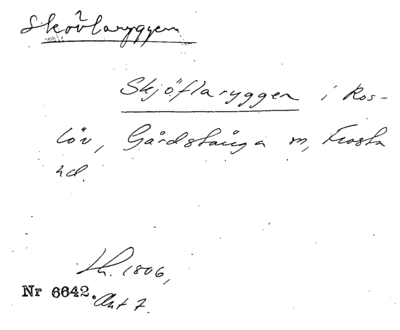 Skövlaryggen
Skjöflaryggen i Ros-
löv, Gårdstånga sn, Frosta
hd.
1806,
Nr 6642. Akt 7.